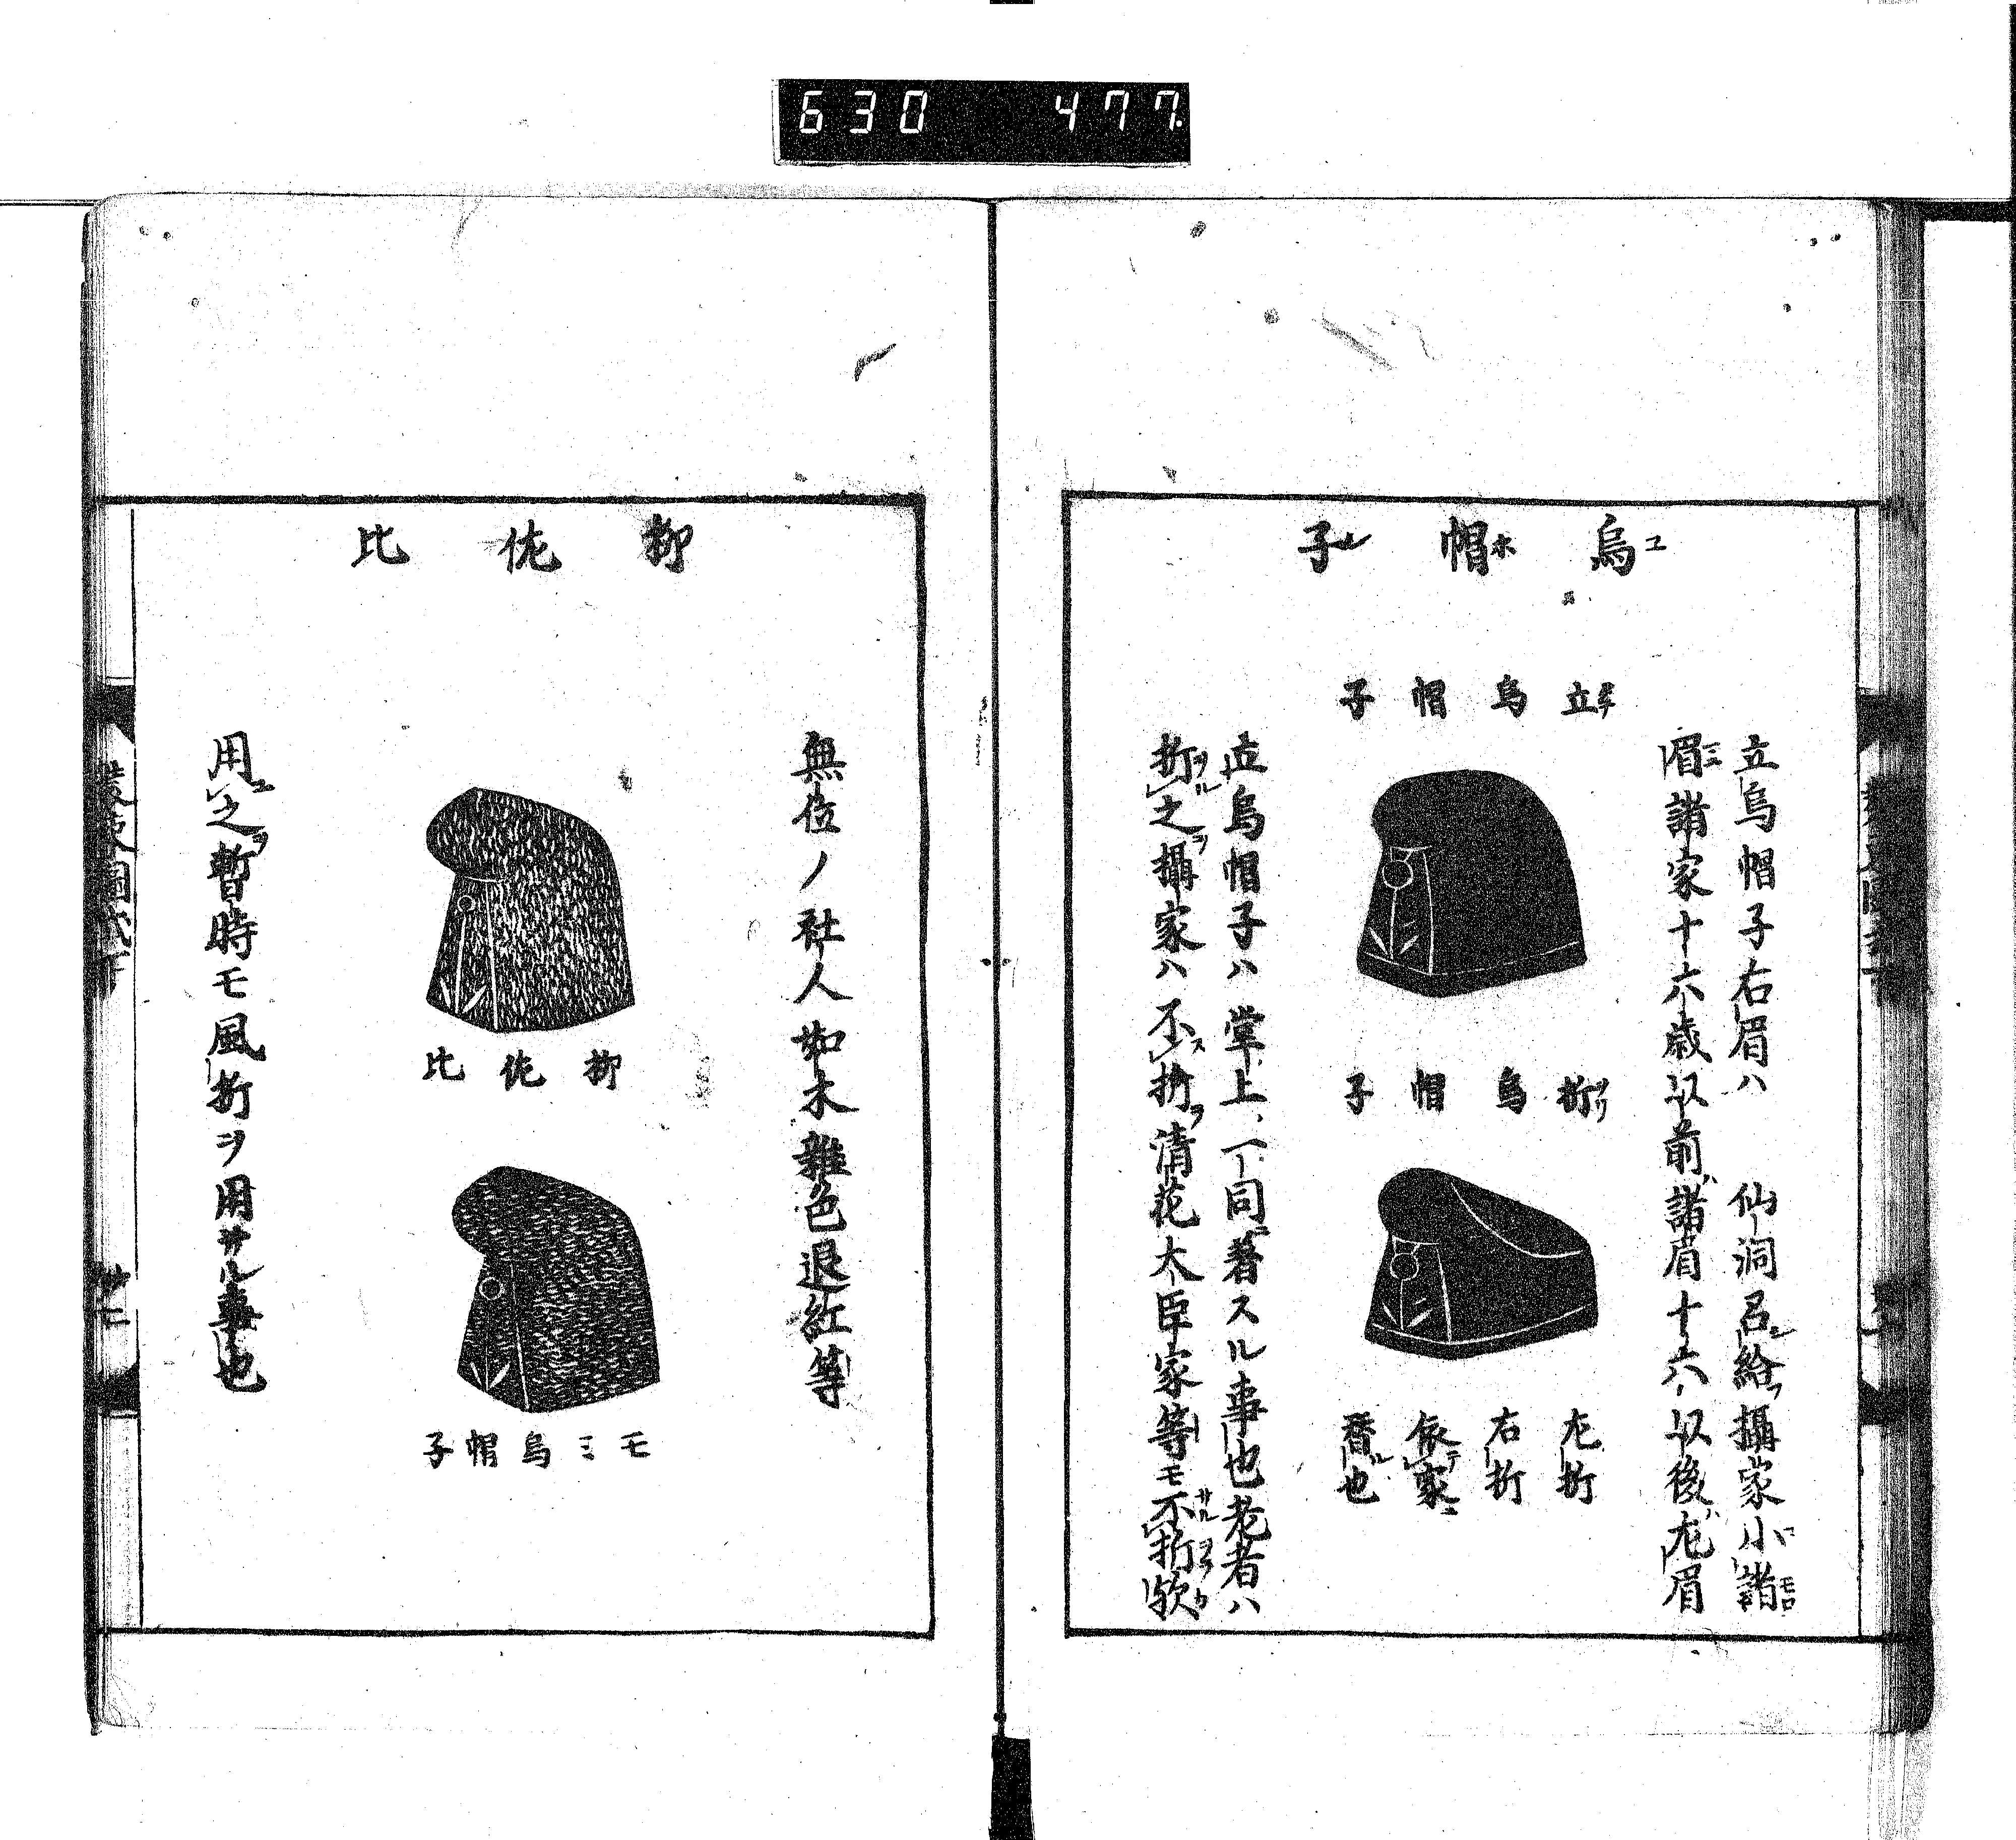 630 477.
烏帽子
エホシ
立烏帽子右眉ハ 仙洞召給攝家小諸
眉諸家十六歳以前諸眉十六以後左眉
立烏帽子
折烏帽子
左折
右折
依家
替也
立烏帽子ハ堂上一同着スル事也老者ハ
折之攝家ハ不折清花大臣家等モ不折歟
柳佐比
無位ノ社人如木雑色退紅等
柳佐比
モミ烏帽子
用之暫時モ風折ヲ用サル事也